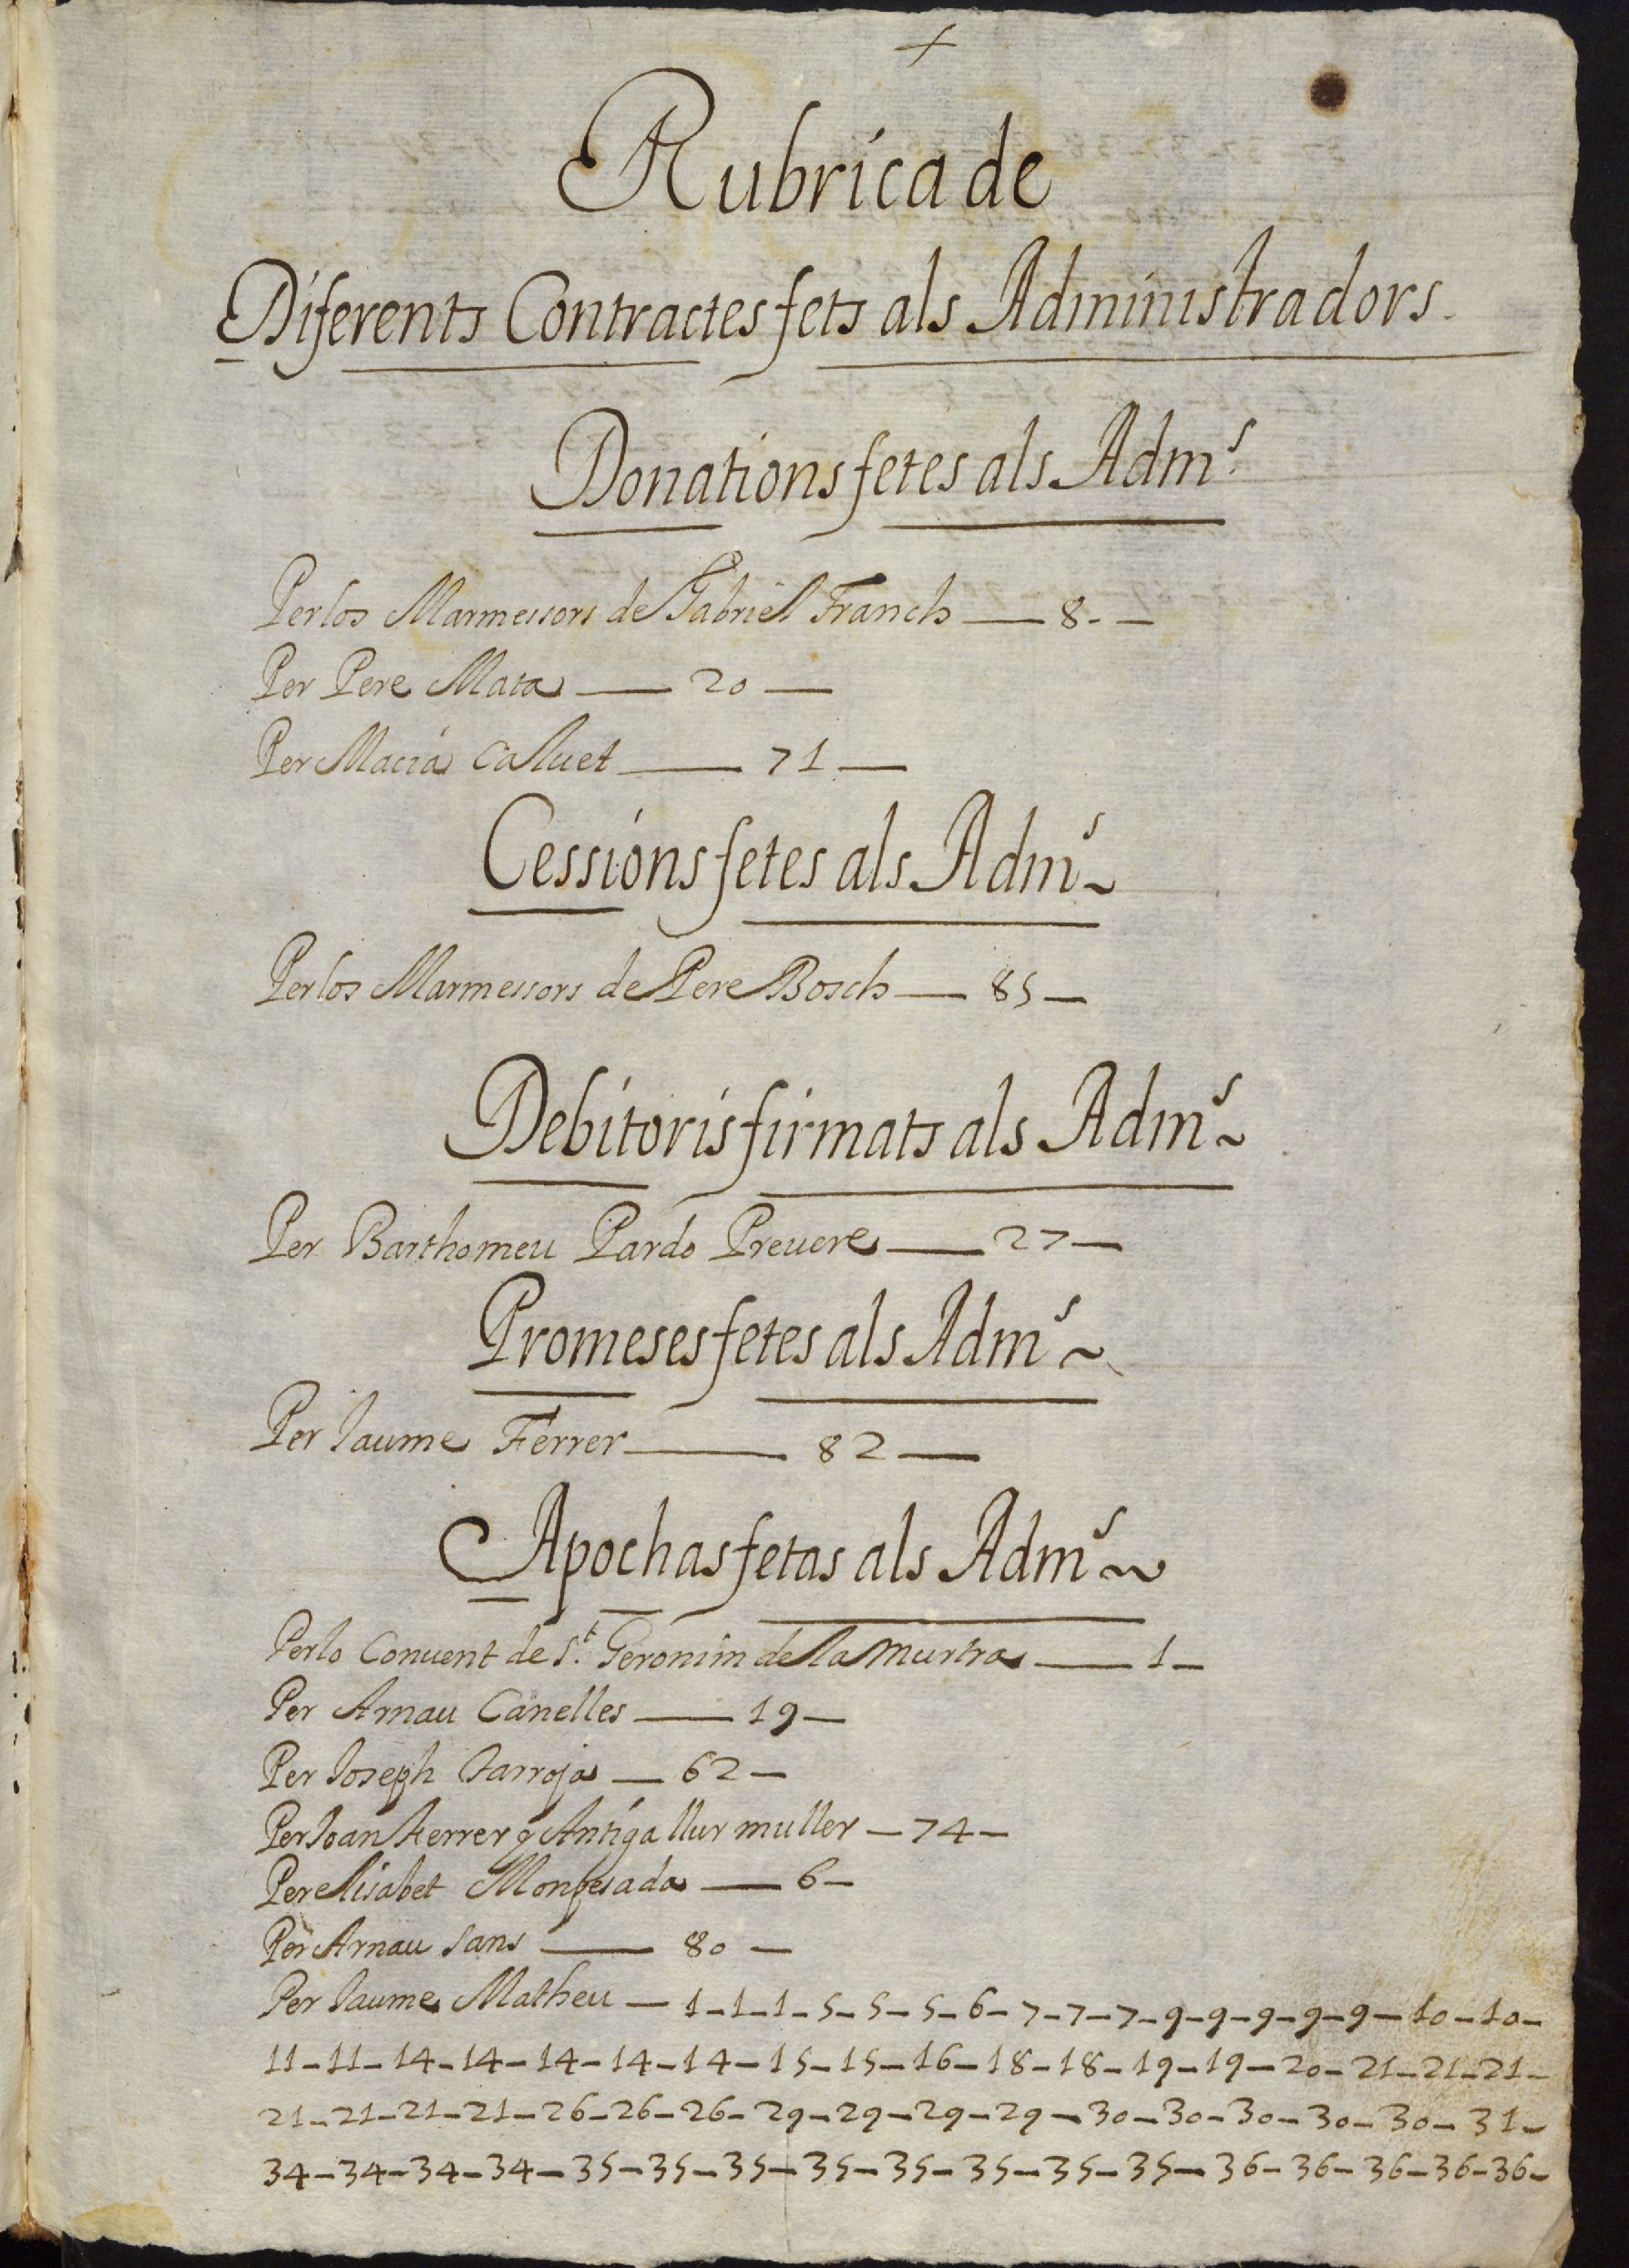 +
Rubrica de
Diferents Contractes fets als Administradors.
Donations fetes als Adm.s
Per los Marmessors de Gabriel Franch — 8. —
Per Pere Mata — 20 —
Per Macià Caluet — 71 —
Cessions fetes als Adms ~
Per los Marmessors de Pere Bosch — 85 —
Debitoris firmats als Adms ~
Per Barthomeu Pardo Preuere — 27 —
Promeses fetes als Adms ~
Per Jaume Ferrer — 82 —
Apochas fetas als Adms ~
Per lo Conuent de S.t Geronim de la Murtra — 1 —
Per Arnau Canelles — 19 —
Per Joseph — 62 —
Per Joan Ferrer y Antiga llur muller — 74 —
Per elisabet Monpesada — 6 —
Per Arnau Sans — 80 —
Per Jaume Matheu — 1 — 1 — 1 — 5 — 5 — 5 — 6 — 7 — 7 — 7 — 9 — 9 — 9 — 9 — 9 — 10 — 10 —
11 — 11 — 14 — 14 — 14 — 14 — 14 — 15 — 15 — 16 — 18 — 18 — 19 — 19 — 20 — 21 — 21 — 21 —
21 — 21 — 21 — 21 — 26 — 26 — 26 — 29 — 29 — 29 — 29 — 30 — 30 — 30 — 30 — 30 — 31 —
34 — 34 — 34 — 34 — 35 — 35 — 35 — 35 — 35 — 35 — 35 — 35 — 36 — 36 — 36 — 36 — 36 —